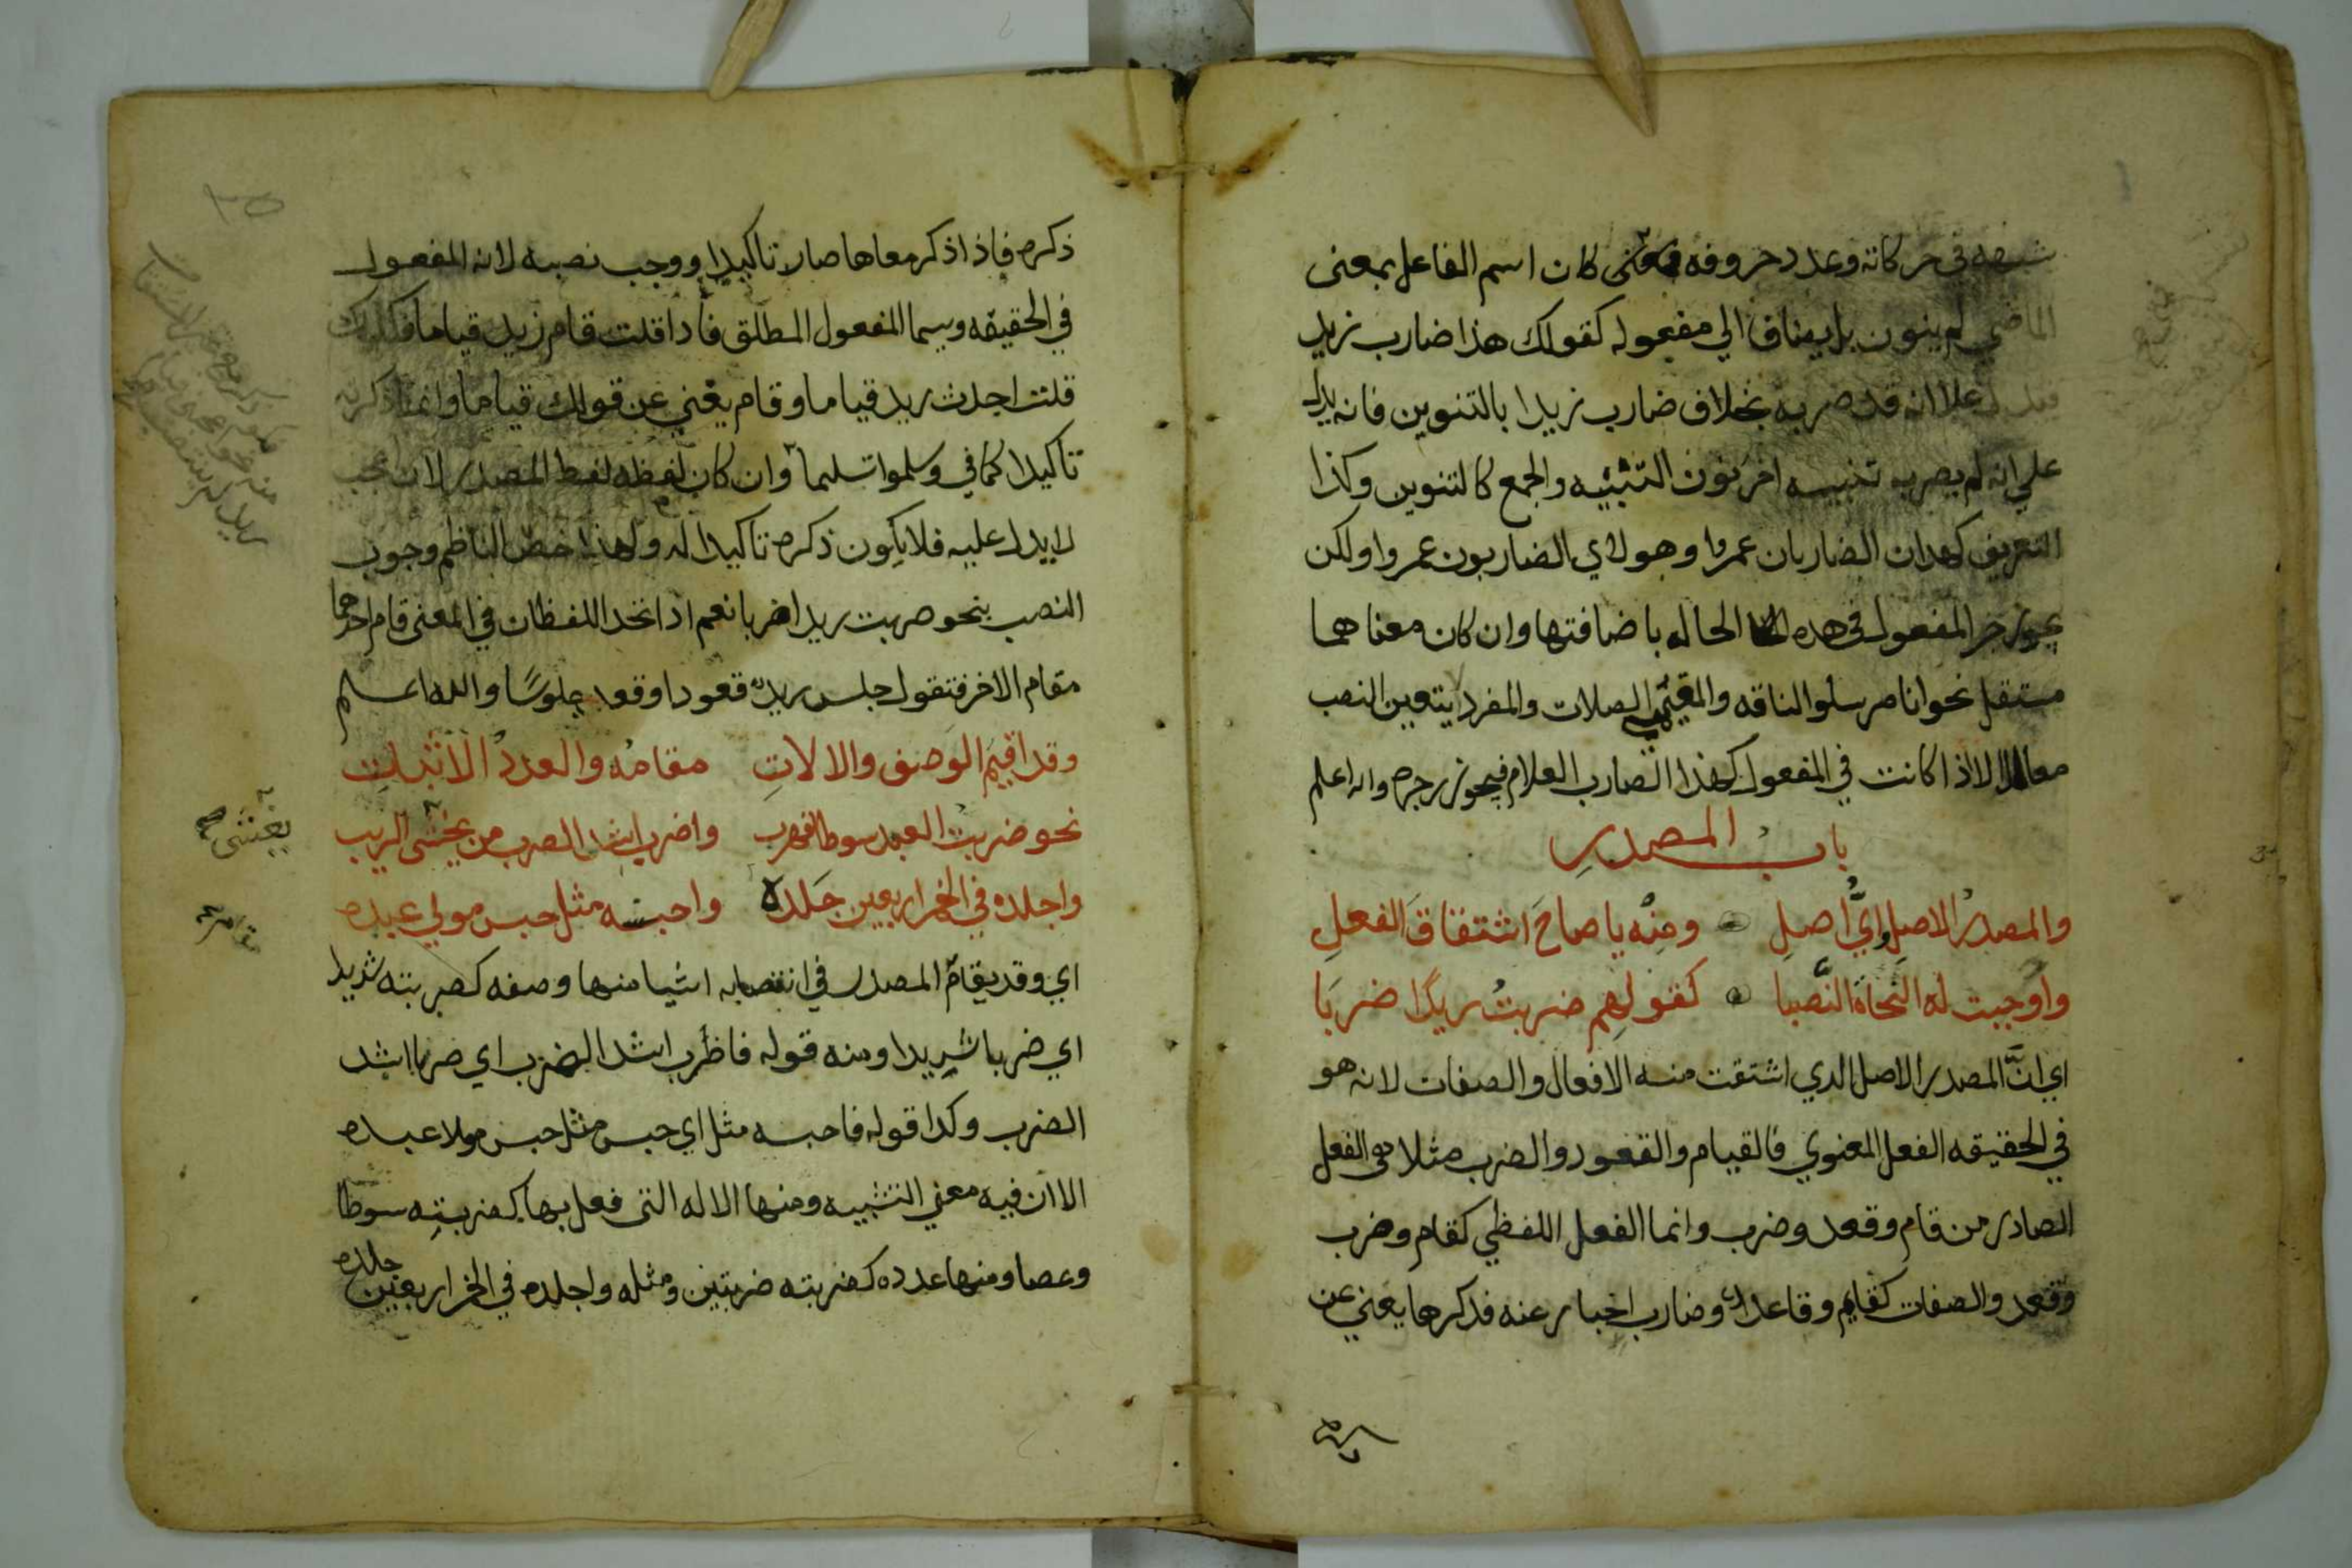 شبهه في حركاته وعدد حروفه فمتى كان اسم الفاعل بمعنى
الماضي لم ينون بل يضاف الي مفعوله كقولك هذا ضارب زيد
علا انه قد ضربه بخلاف ضارب زيدا بالتنوين فانه يدل
علي انه لم يضربه تنبيه اخر نون التثنيه والجمع كالتنوين وكذا
التعريف كهذان الضاربان عمروا وهولاي الضاربون عمروا ولكن
يجوز جر المفعول في هذه الحاله باضافتها وان كان معناهما
مستقبل نحو انا مرسلوا الناقه والمقيمي الصلات والمفرد يتعين النصب
الا اذا كانت في المفعول كهذا الضارب الغلام فيجوز جره والله اعلم
باب المصدر
والمصدر الاصل واي اصل ومنه يا صاح اشتقاق الفعل
واوجبت له النحاة النصبا كقولهم ضربت زيدا ضربا
اي ان المصدر الاصل الدي اشتقت منه الافعال والصفات لانه هو
في الحقيقه الفعل المعنوي فالقيام والقعود والضرب مثلا هي الفعل
الصادر من قام وقعد وضرب وانما الفعل اللفظي كقام وضرب
وقعد والصفات كقايم وقاعد وضارب اخبار عنه فدكرها يغني عن
ذكره فاذا ذكر معاها صار تاكيدا ووجب نصبه لانه المفعول
في الحقيقه ويسما المفعول المطلق فأدا قلت قام زيد قياما فكانك
قلت احدث زيد قياما وقام يغني عن قولك قياما وانما ذكرته
تاكيدا كما في وسلموا تسليما وان كان لفظه لفظ المصدر لان
لا يدل عليه فلا يكون ذكره تاكيدا له ولهذا خص الناظم وجوب
النصب بنحو ضربت زيدا ضربا نعم ادا اتحد اللفظان في المعنى قام احدهما
مقام الاخر فتقول جلس زيد قعودا وقعد جلوسًا والله اعلم
وقد اقيم الوصف والالات مقامه والعدد الاثبات
نحو ضربت العبد سوطا فهرب واضرب اشد الضرب من يخشى الريب
واجلده في الخمر اربعين جلده واحبسه مثل حبس مولي عبده
اي وقد يقام المصدر في انتصابه اشيا منها وصفه كضربته شديدا
اي ضربا شديدا ومنه قوله فاضرب اشد الضرب اي ضربا اشد
الضرب وكدا قوله فاحبسه مثل اي حبس مثل حبس مولا عبده
الا ان فيه معني التشبيه ومنها الاله التي فعل بها كضربته سوطا
وعصا ومنها عدده كضربته ضربتين ومثله واجلده في الخمر اربعين جلده
يغشى